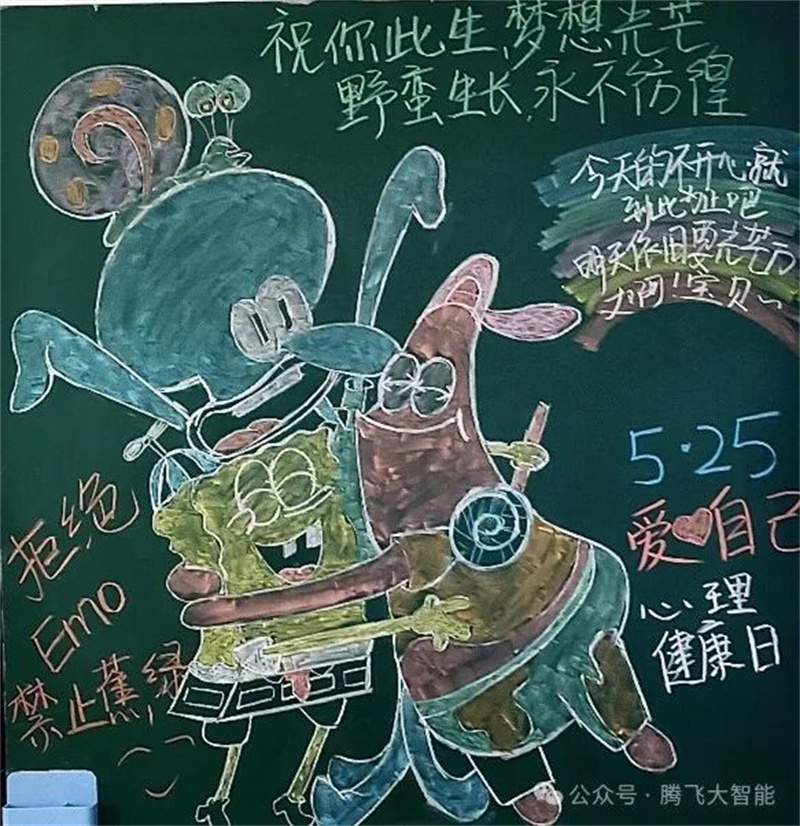 祝你此生梦想光芒
野蛮生长,永不彷徨
今天的不开心就
到此为止吧
明天依旧要光芒万
丈啊!宝贝~
5·25
爱❤自己
心理
健康日
拒绝
Emo
禁止蕉绿
公众号·腾飞大智能